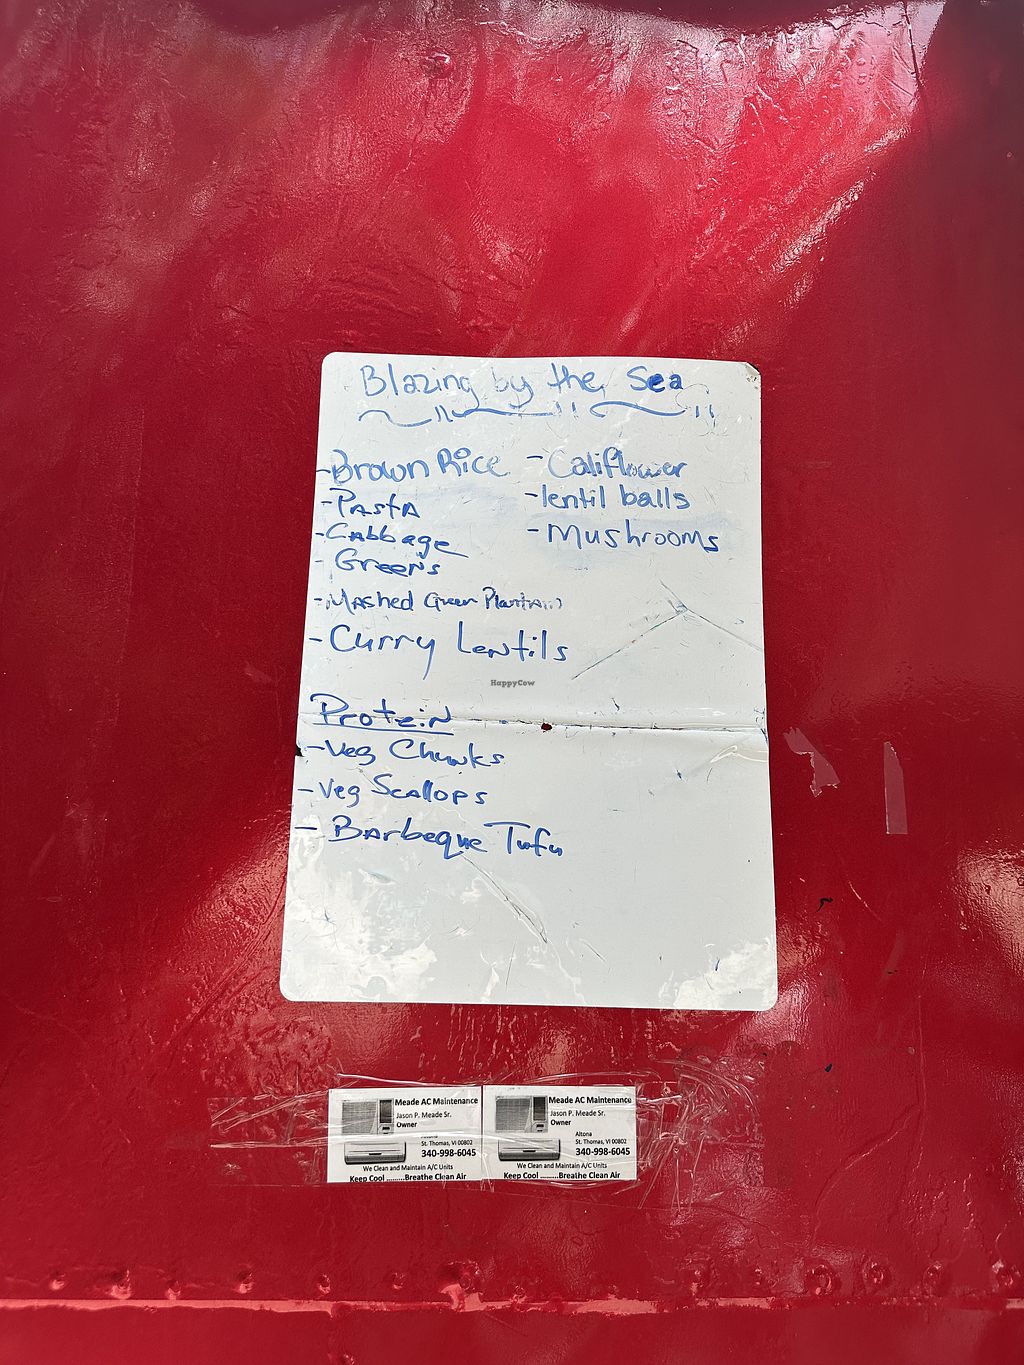 Blazing by the Sea
- Brown Rice
- Pasta
- Cabbage
- Greens
- Mashed Green Plantain
- Curry Lentils
- Califlower
- lentil balls
- Mushrooms
Protein
- Veg Chunks
- Veg Scallops
- Barbeque Tufu
HappyCow
Meade AC Maintenance
Jason P. Meade Sr.
Owner
Altona
St. Thomas, VI 00802
340-998-6045
We Clean and Maintain A/C Units
Keep Cool ........Breathe Clean Air
Meade AC Maintenance
Jason P. Meade Sr.
Owner
Altona
St. Thomas, VI 00802
340-998-6045
We Clean and Maintain A/C Units
Keep Cool ........Breathe Clean Air